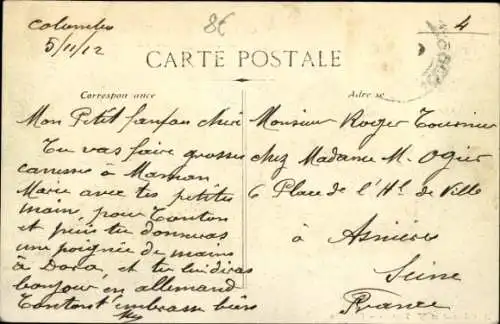 Colombes
5/11/12
86
4
CARTE POSTALE
Correspondance
Adresse
Mon Petit fanfan chéri
Tu vas faire grosses
caresses à Maman
Marie avec tes petites
main, pour Tonton
et puis tu donneras
une poignée de mains
à Dora, et tu lui diras
bonjour en allemand
Tonton t'embrasse bien
Monsieur Roger Tournier
chez Madame M. Ogier
6 Place de l'Hl de Ville
à Asnières
Seine
France